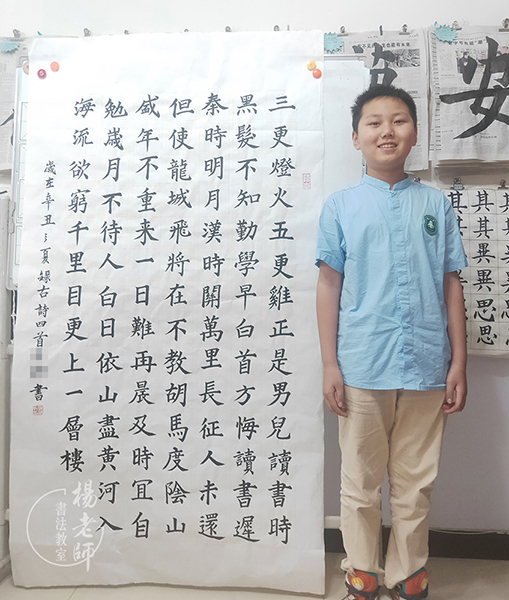 三更燈火五更雞正是男兒讀書時
黑髮不知勤學早白首方悔讀書遲
秦時明月漢時關萬里長征人未還
但使龍城飛將在不教胡馬度陰山
盛年不重來一日難再晨及時冝自
勉歲月不待人白日依山盡黃河入
海流欲窮千里目更上一層樓
歲在辛丑之夏錄古詩四首 書
安
其其異異思思
其其異異思思
楊老師
書法教室